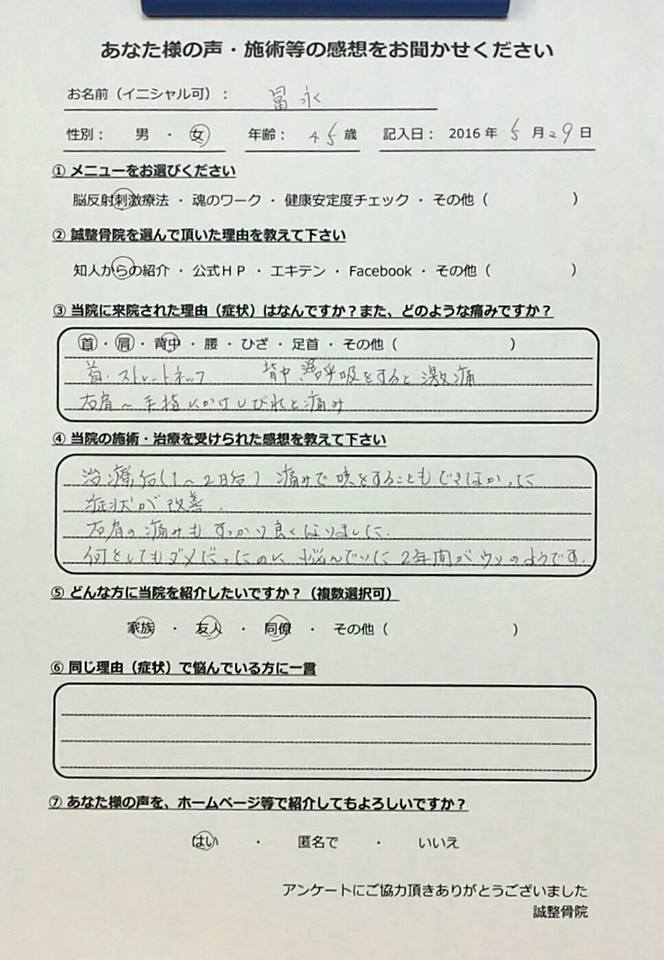 あなた様の声・施術等の感想をお聞かせください
お名前（イニシャル可）： 冨永
性別： 男 ・ 女 年齢： 45 歳 記入日： 2016 年 5 月 29 日
① メニューをお選びください
脳反射刺激療法 ・ 魂のワーク ・ 健康安定度チェック ・ その他（ ）
② 誠整骨院を選んで頂いた理由を教えて下さい
知人からの紹介 ・ 公式ＨＰ ・ エキテン ・ Facebook ・ その他（ ）
③ 当院に来院された理由（症状）はなんですか？また、どのような痛みですか？
首 ・ 肩 ・ 背中 ・ 腰 ・ ひざ ・ 足首 ・ その他（ ）
首・ストレートネック 背中 呼吸をすると激痛
右肩～手指にかけしびれと痛み
④ 当院の施術・治療を受けられた感想を教えて下さい
治療后（1～2日后）痛みで咳をすることもできなかった
症状が改善．
右肩の痛みもすっかり良くなりました．
何をしてもダメだったのに 悩んでいた2年間がウソのようです．
⑤ どんな方に当院を紹介したいですか？（複数選択可）
家族 ・ 友人 ・ 同僚 ・ その他（ ）
⑥ 同じ理由（症状）で悩んでいる方に一言
⑦ あなた様の声を、ホームページ等で紹介してもよろしいですか？
はい ・ 匿名で ・ いいえ
アンケートにご協力頂きありがとうございました
誠整骨院